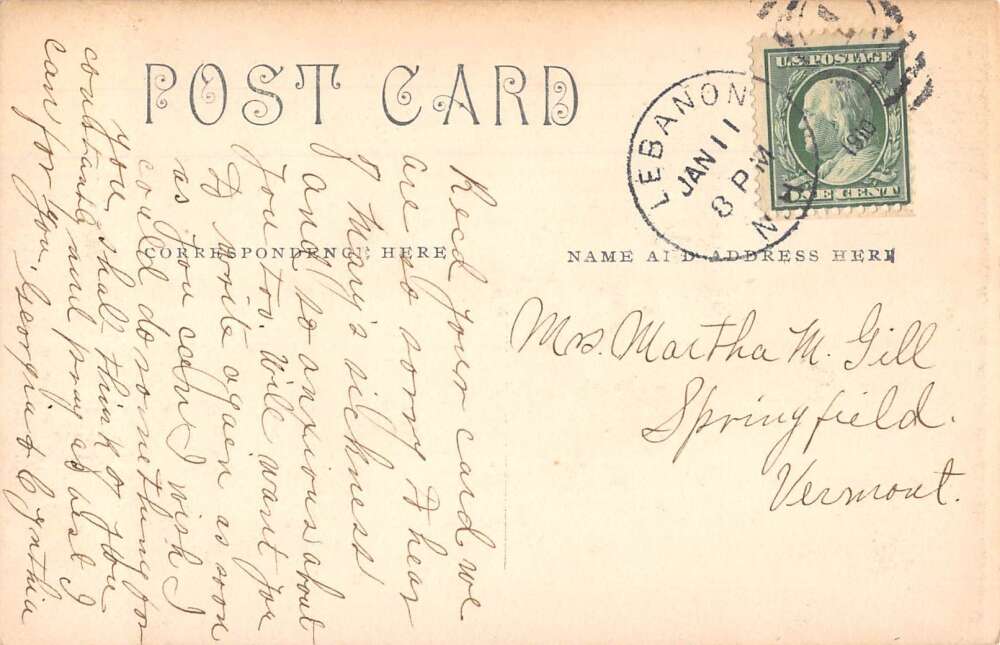 POST CARD
CORRESPONDENCE HERE
NAME AND ADDRESS HERE
U.S. POSTAGE
ONE CENT
LEBANON N.H.
JAN 11
8 PM
1910
Mrs. Martha M. Gill
Springfield.
Vermont.
Recd your card we
are so sorry to hear
of Mary's sickness
and so anxious about
you too. Will want for
to write again as soon
as you can. I wish I
could do something for
you, shall think of you
constantly and pray as best I
can for you. Georgia & Cynthia